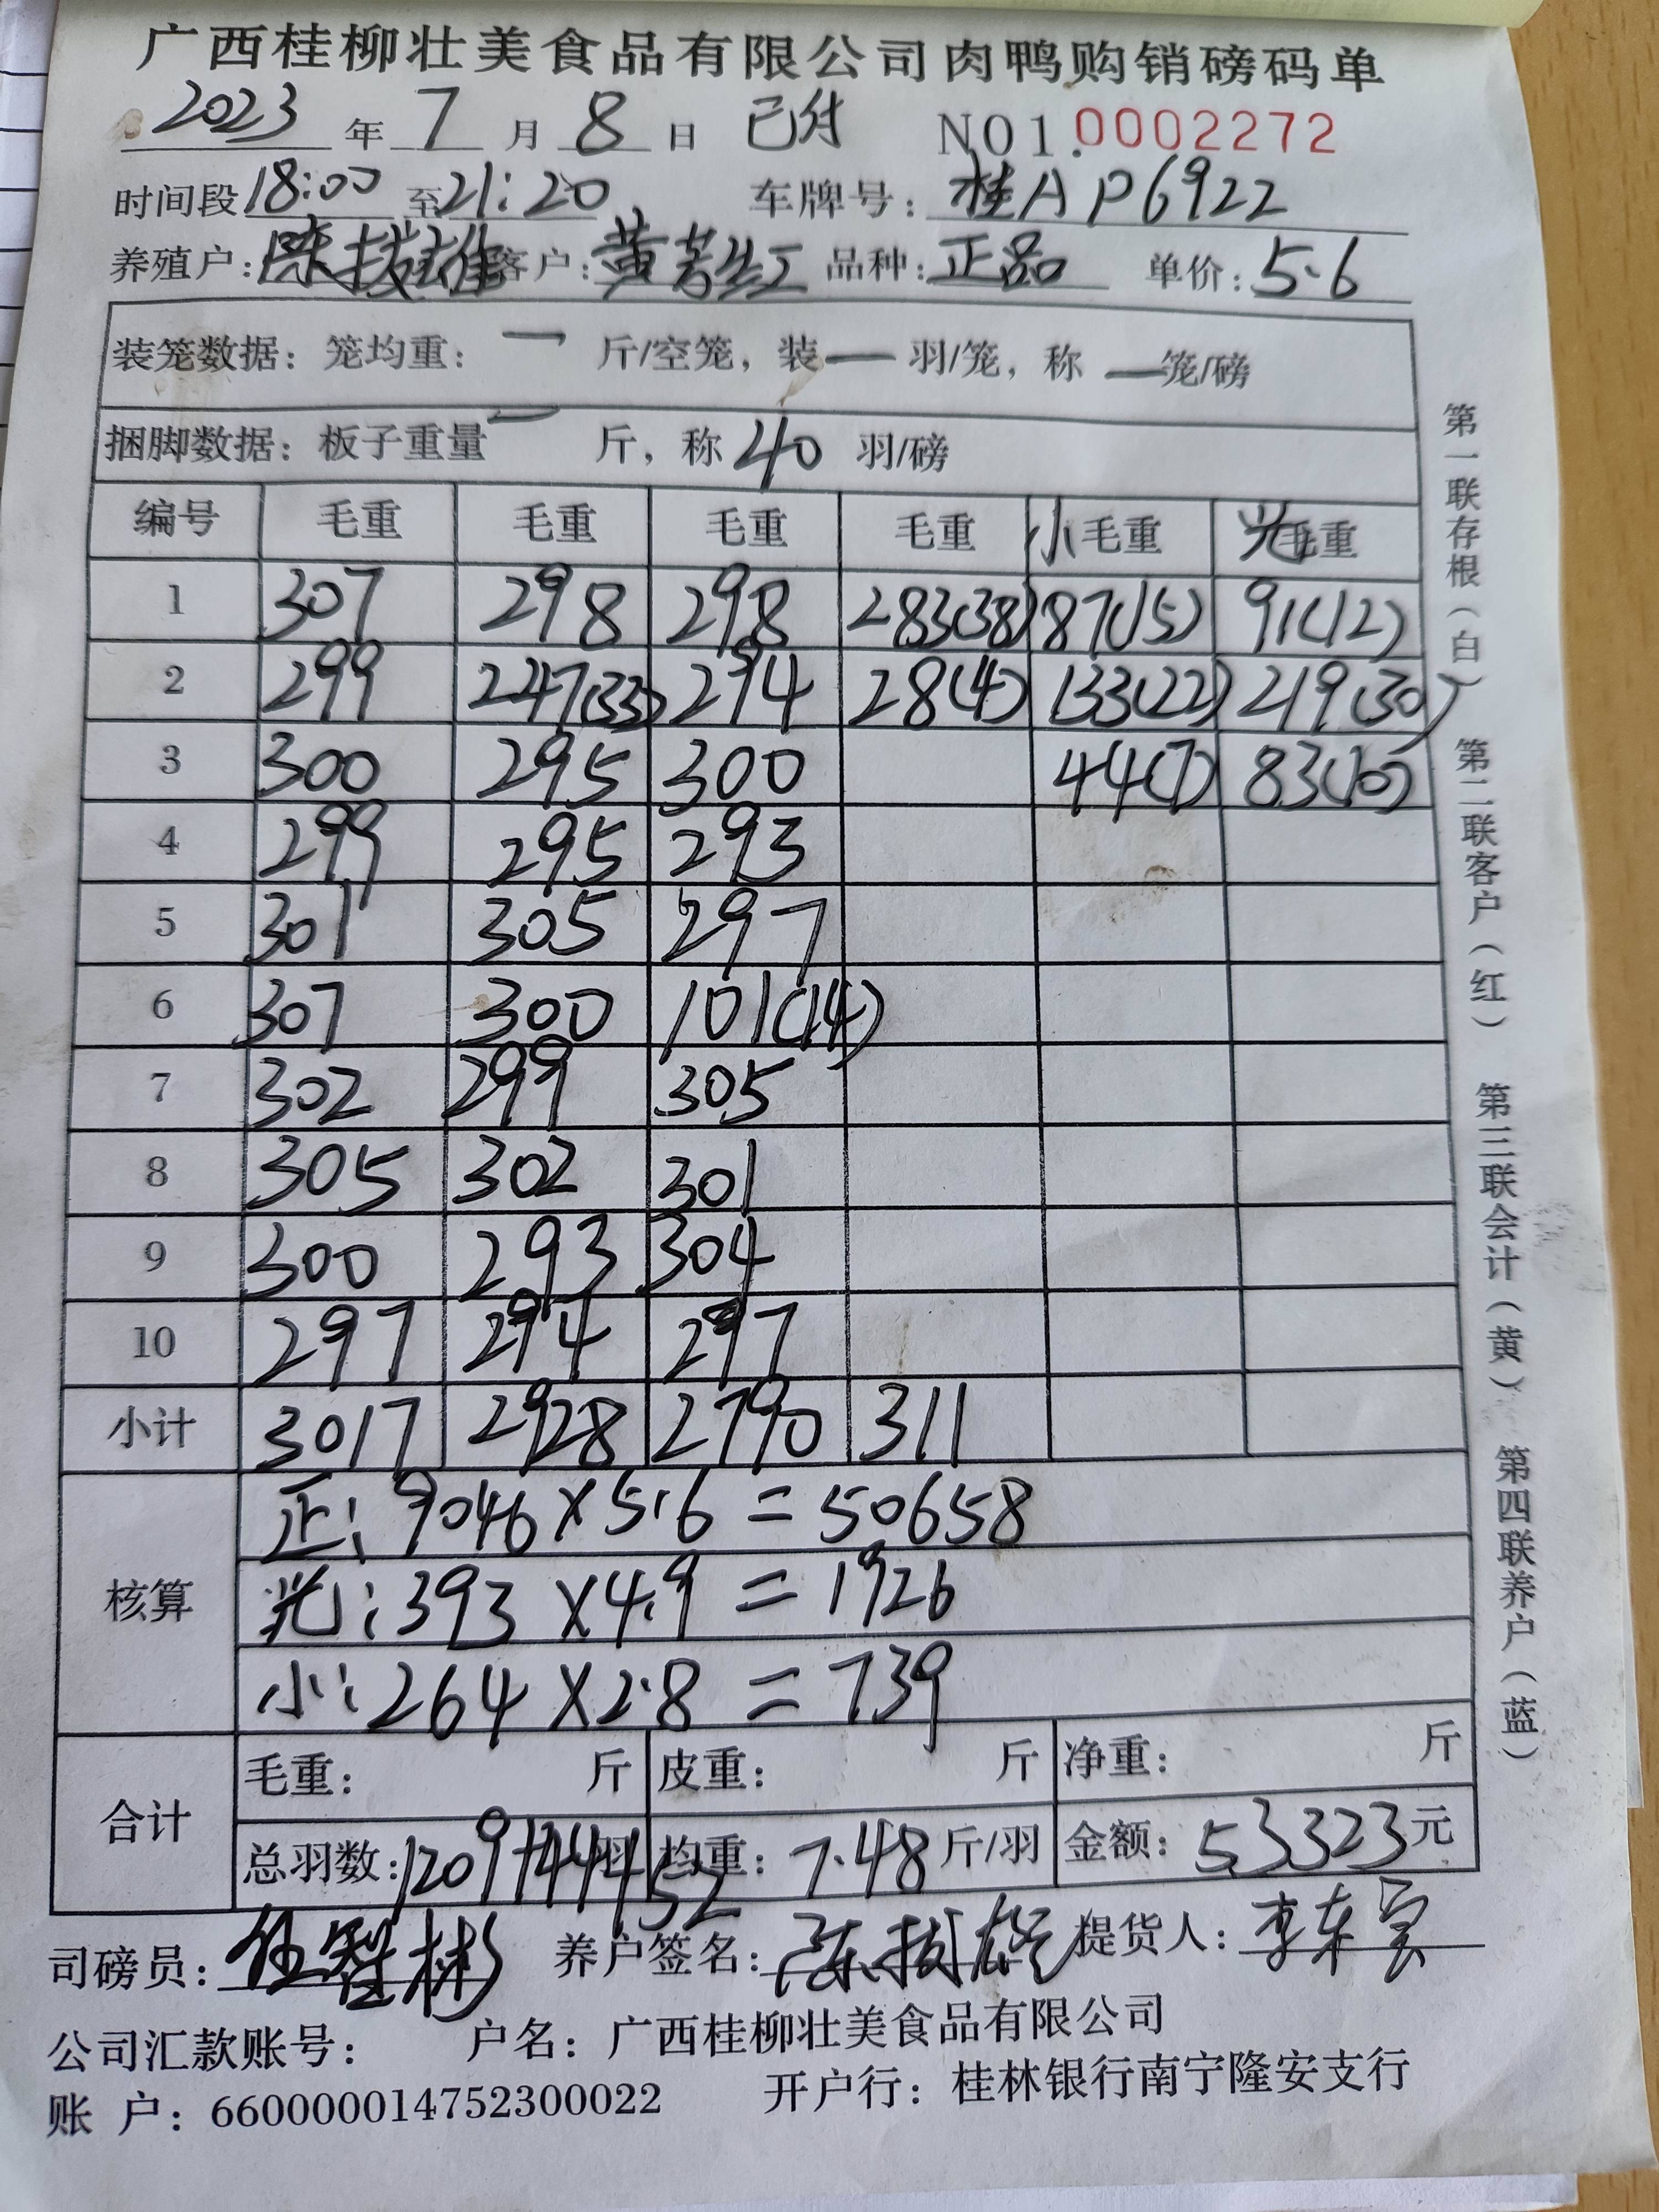 广西桂柳壮美食品有限公司肉鸭购销磅码单
2023 年 7 月 8 日 已付 NO1.0002272
时间段 18:00 至 21:20 车牌号: 桂A P6922
养殖户: 陈拔雄 客户: 黄芳红 品种: 正品 单价: 5.6
装笼数据: 笼均重: 一 斤/空笼, 装 一 羽/笼, 称 一 笼/磅
捆脚数据: 板子重量 一 斤, 称 40 羽/磅
编号 毛重 毛重 毛重 毛重 小毛重 光毛重
1 307 298 298 283(38) 87(15) 91(12)
2 299 247(33) 294 28(4) 133(22) 219(30)
3 300 295 300 44(7) 83(10)
4 299 295 293
5 301 305 297
6 307 300 101(14)
7 302 299 305
8 305 302 301
9 300 293 304
10 297 294 297
小计 3017 2928 2790 311
核算
正: 9046 X 5.6 = 50658
光: 393 X 4.9 = 1926
小: 264 X 2.8 = 739
合计
毛重: 斤 皮重: 斤 净重: 斤
总羽数: 1209+44+52 羽 均重: 7.48 斤/羽 金额: 53323 元
司磅员: 伍智彬 养户签名: 陈拔雄 提货人: 李东
公司汇款账号: 户名: 广西桂柳壮美食品有限公司
账 户: 660000014752300022 开户行: 桂林银行南宁隆安支行
第一联存根(白) 第二联客户(红) 第三联会计(黄) 第四联养户(蓝)